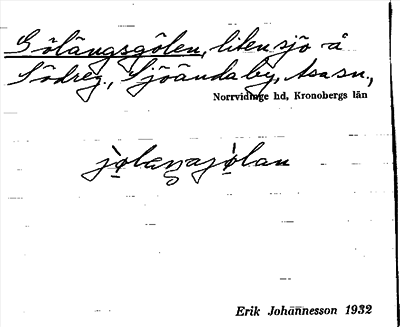 Gölängsgölen, liten sjö å
Södreg., Sjöanda by, Asa sn.,
Norrvidinge hd, Kronobergs län
Erik Johannesson 1932